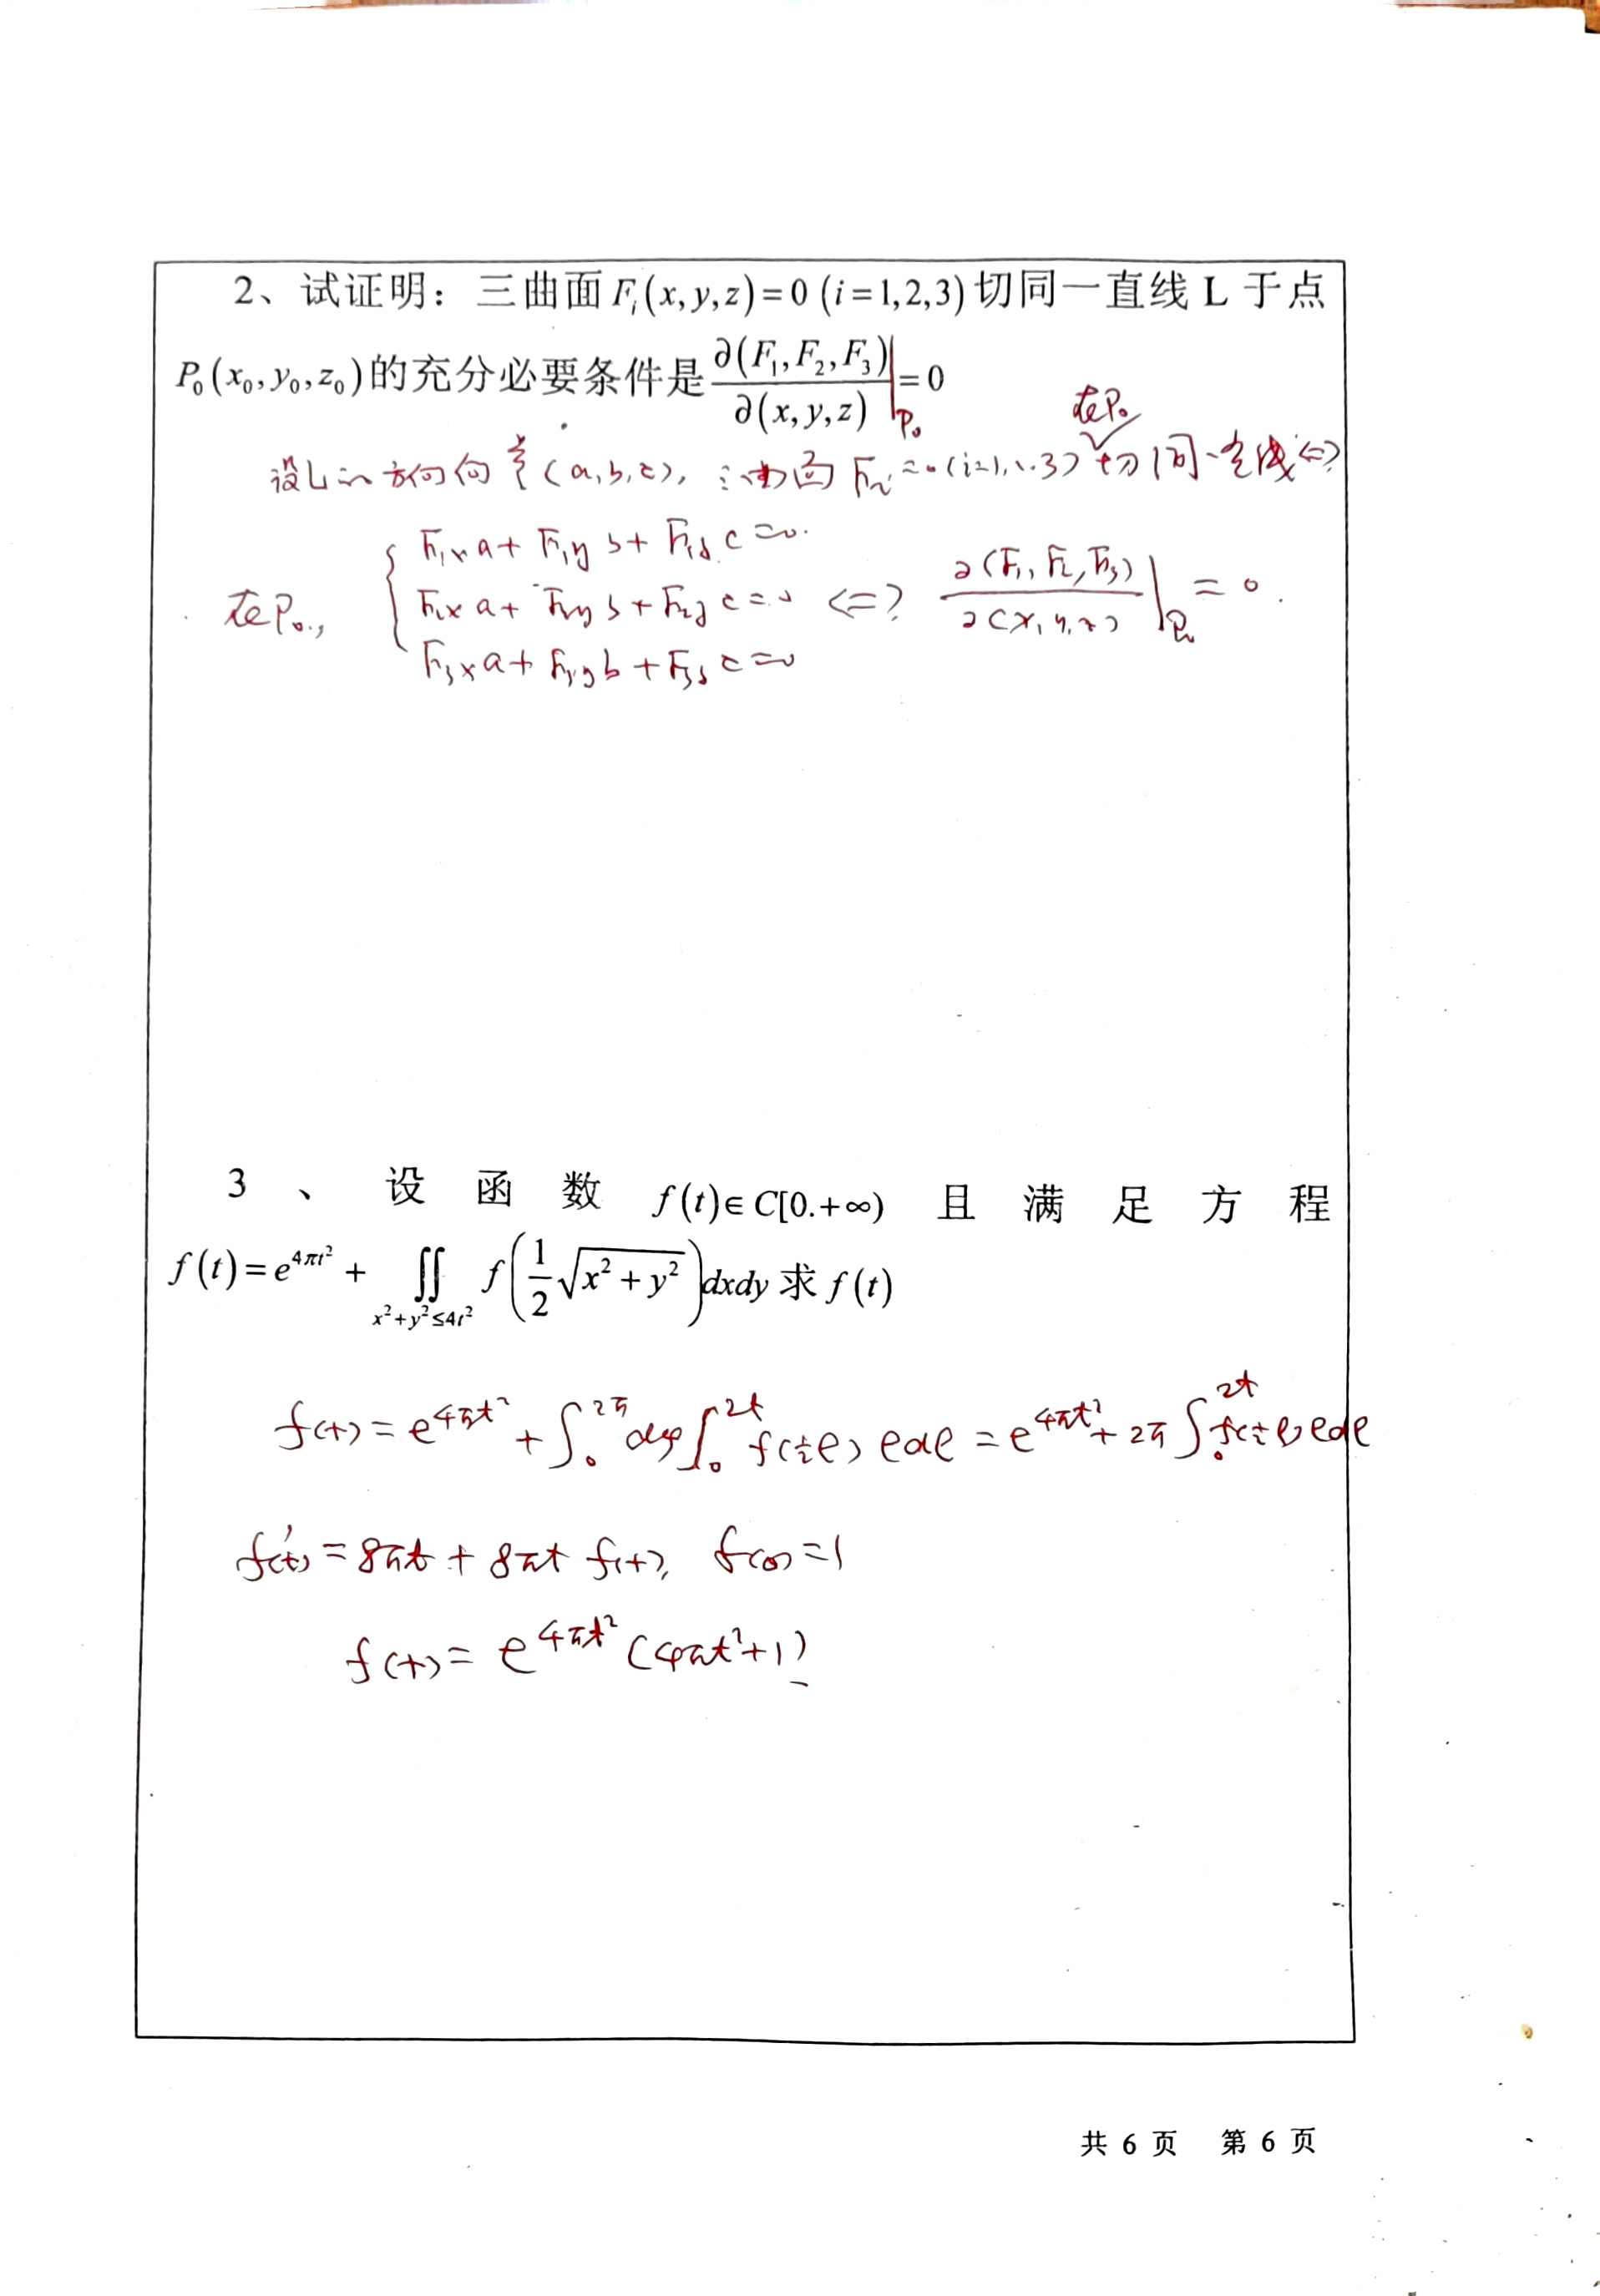 2、试证明：三曲面 Fᵢ(x,y,z)=0 (i=1,2,3)切同一直线 L 于点
P₀(x₀,y₀,z₀)的充分必要条件是 ∂(F₁,F₂,F₃)/∂(x,y,z)|P₀ =0
在P₀
设L的方向向量(a,b,c), 三曲面 Fᵢ=0(i=1,2,3)切同一直线⇔
在P₀,
F₁ₓa+F₁yb+F₁zc=0.
F₂ₓa+F₂yb+F₂zc=0 ⇔ ∂(F₁,F₂,F₃)/∂(x,y,z)|P₀ =0.
F₃ₓa+F₃yb+F₃zc=0
3、设函数 f(t)∈C[0.+∞) 且满足方程
f(t)=e^{4πt²}+∬_{x²+y²≤4t²} f(1/2 √(x²+y²))dxdy 求 f(t)
f(t)=e^{4πt²}+∫₀^{2π}dφ∫₀^{2t} f(½ρ)ρdρ=e^{4πt²}+2π∫₀^{2t} f(½ρ)ρdρ
f'(t)=8πt+8πt f(t), f(0)=1
f(t)=e^{4πt²}(4πt²+1)
共 6 页 第 6 页